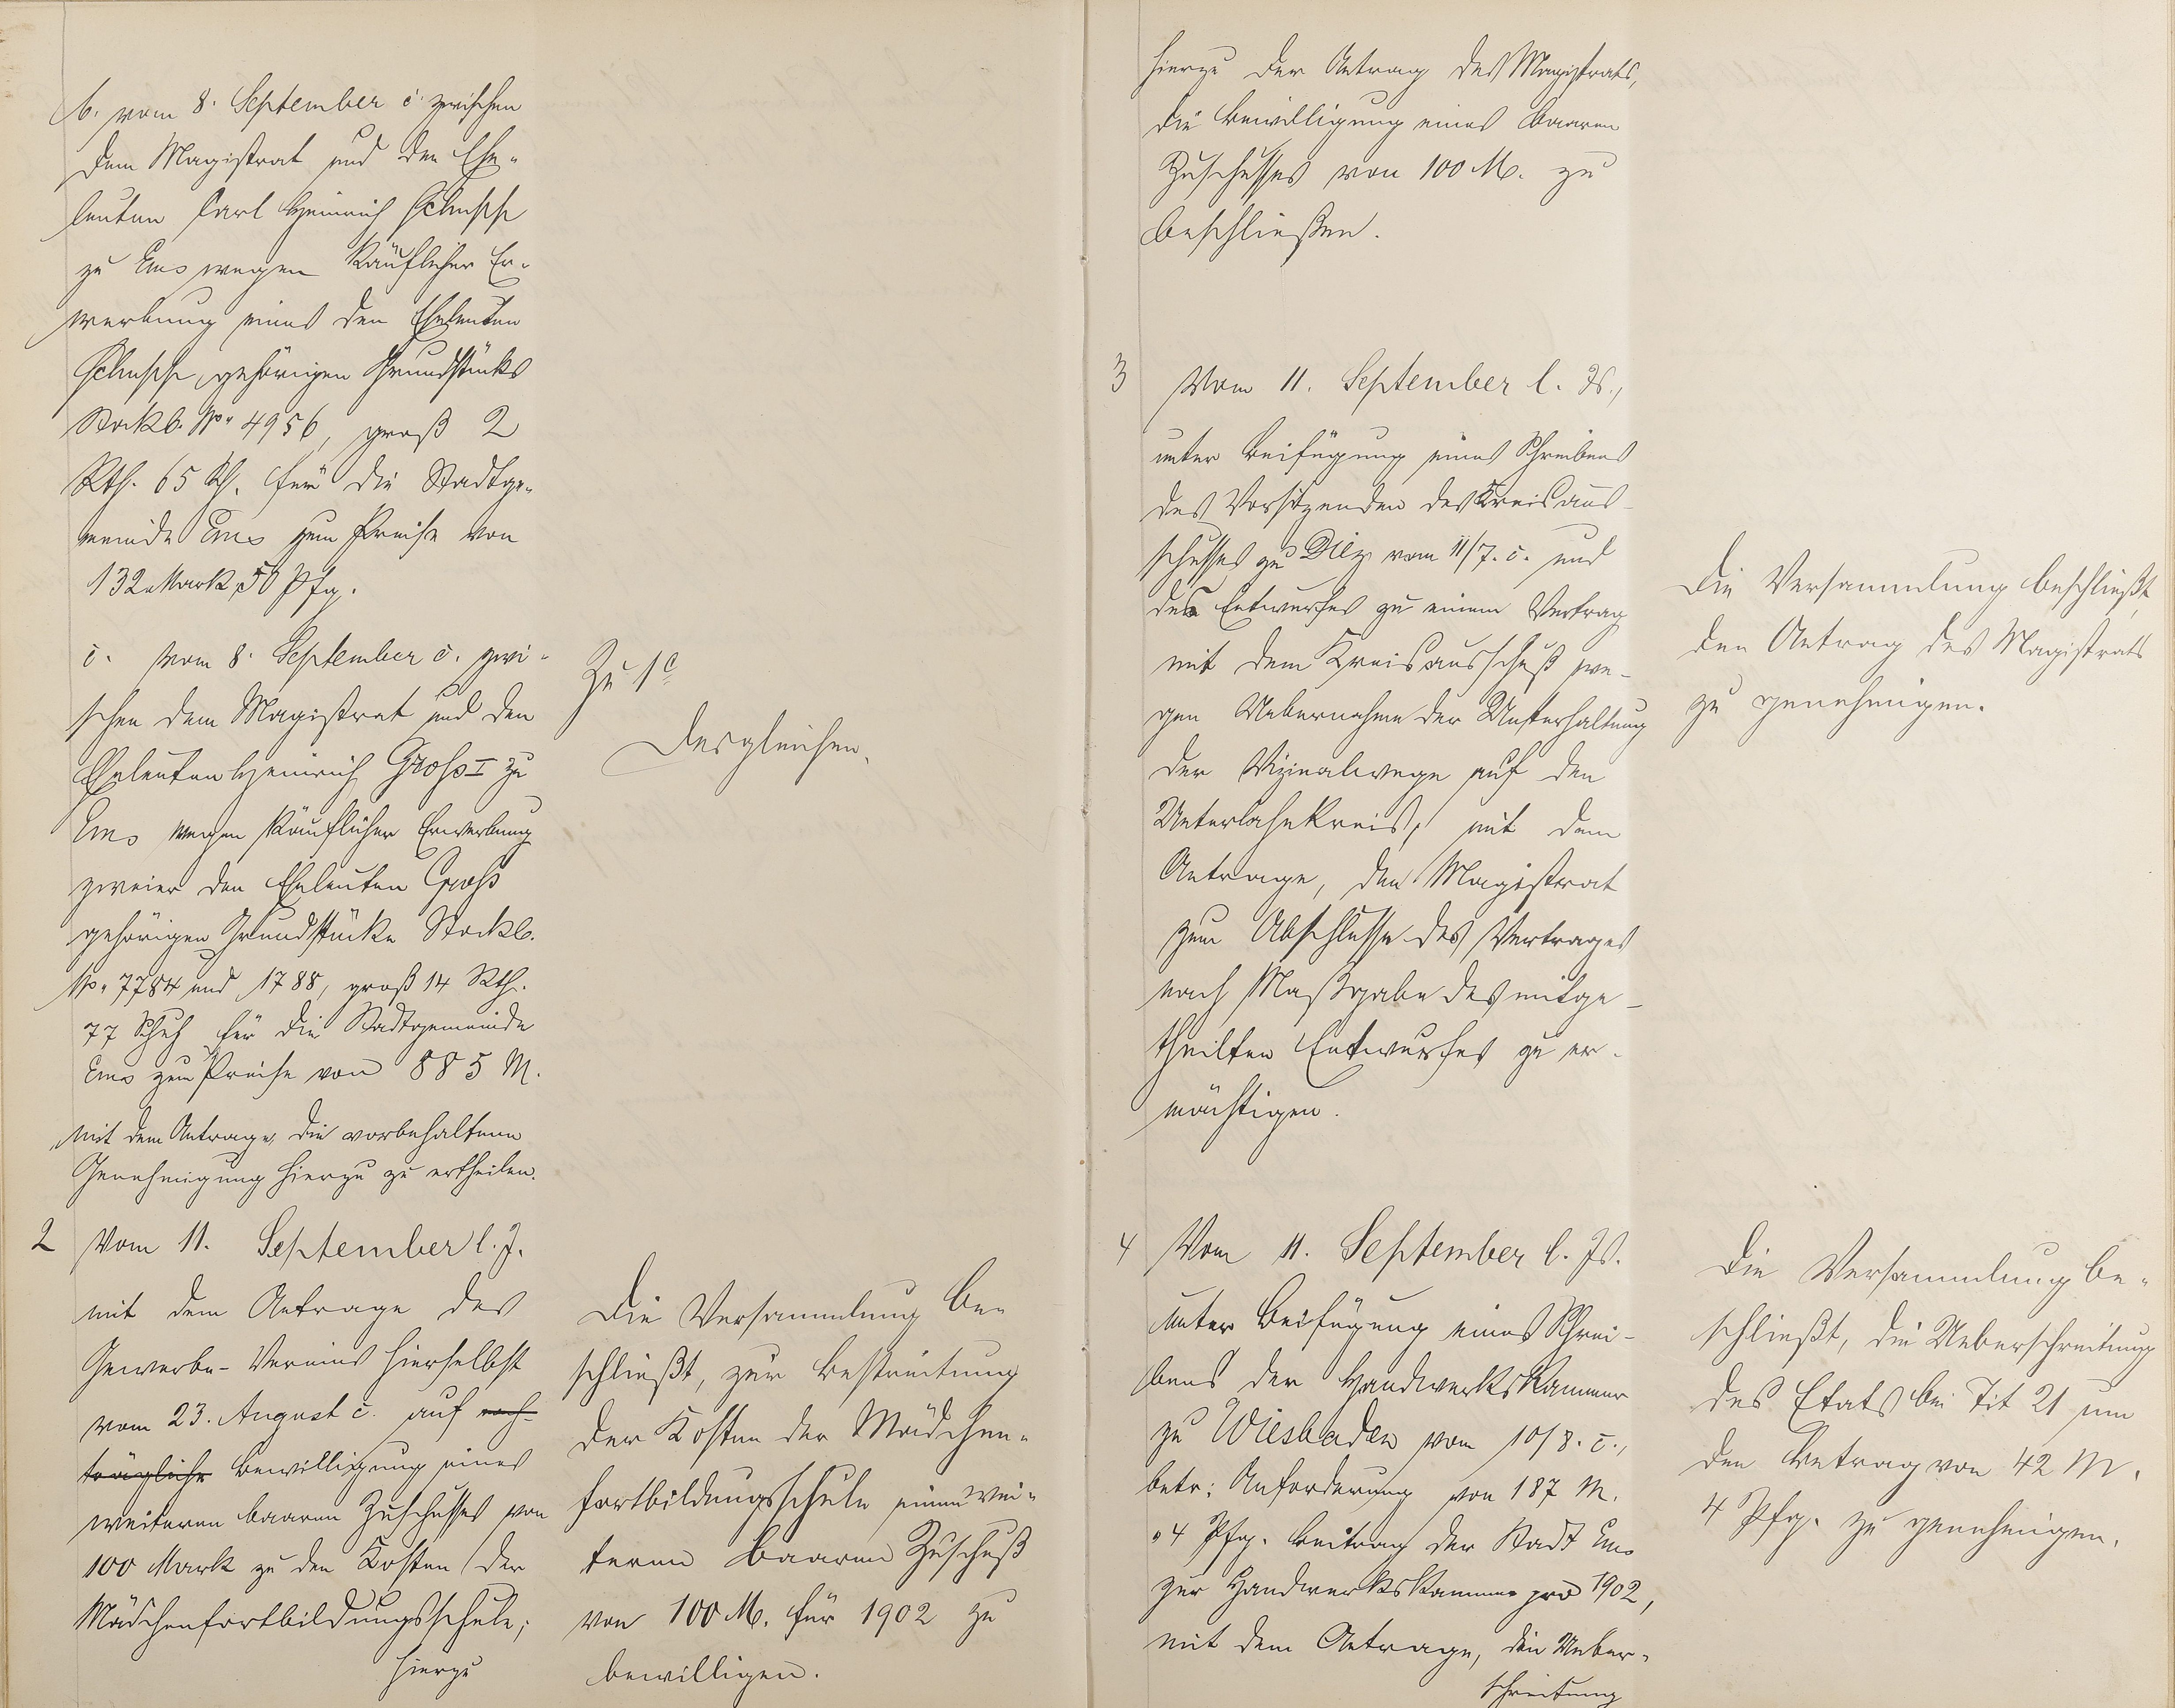 b. vom 8. September c. zwischen
dem Magistrat und den Ehe-
leuten Carl Heinrich
zu Ems wegen käuflicher Er-
werbung eines den Eheleuten
gehörigen Grundstücks
Stockb. No. 4956, groß 2
Rth. 65 Sch. für die Stadtge-
meinde Ems zum Preise von
132 Mark 50 Pfg.
c. vom 8. September c. zwi-
schen dem Magistrat und den
Eheleuten Heinrich Gross I zu
Ems wegen käuflicher Erwerbung
zweier den Eheleuten Gross
gehörigen Grundstücke Stockb.
No. 7784 und 1788, groß 14 Rth.
77 Schuh für die Stadtgemeinde
Ems zum Preise von 885 M.
mit dem Antrage, die vorbehaltene
Genehmigung hierzu zu ertheilen.
Zu 1c
Desgleichen.
2 Vom 11. September l. J.
mit dem Antrage des
Gewerbe-Vereins hierselbst
vom 23. August c. auf nach-
trägliche Bewilligung eines
weiteren baaren Zuschusses von
100 Mark zu den Kosten der
Mädchenfortbildungsschule;
hierzu
Die Versammlung be-
schließt, zur Bestreitung
der Kosten der Mädchen-
fortbildungsschule einen wei-
teren baaren Zuschuß
von 100 M. für 1902 zu
bewilligen.
hierzu der Antrag des Magistrats,
die Bewilligung eines baaren
Zuschusses von 100 M. zu
beschließen.
3 Vom 11. September l. Js.,
unter Beifügung eines Schreibens
des Vorsitzenden des Kreisaus-
schusses zu Diez vom 11/7. c. und
des Entwurfes zu einem Vertrag
mit dem Kreisausschuß we-
gen Uebernahme der Unterhaltung
der Vizinalwege auf den
Unterlahnkreis, mit dem
Antrage, den Magistrat
zum Abschlusse des Vertrages
nach Maßgabe des mitge-
theilten Entwurfes zu er-
mächtigen.
Die Versammlung beschließt,
den Antrag des Magistrats
zu genehmigen.
4 Vom 11. September l. Js.
unter Beifügung eines Schrei-
bens der Handwerkskammer
zu Wiesbaden vom 10/8. c.,
betr: Anforderung von 187 M.
04 Pfg. Beitrag der Stadt Ems
zur Handwerkskammer pro 1902,
mit dem Antrage, die Ueber-
schreitung
Die Versammlung be-
schließt, die Ueberschreitung
des Etats bei Tit 21 um
den Betrag von 42 M.
4 Pfg. zu genehmigen.